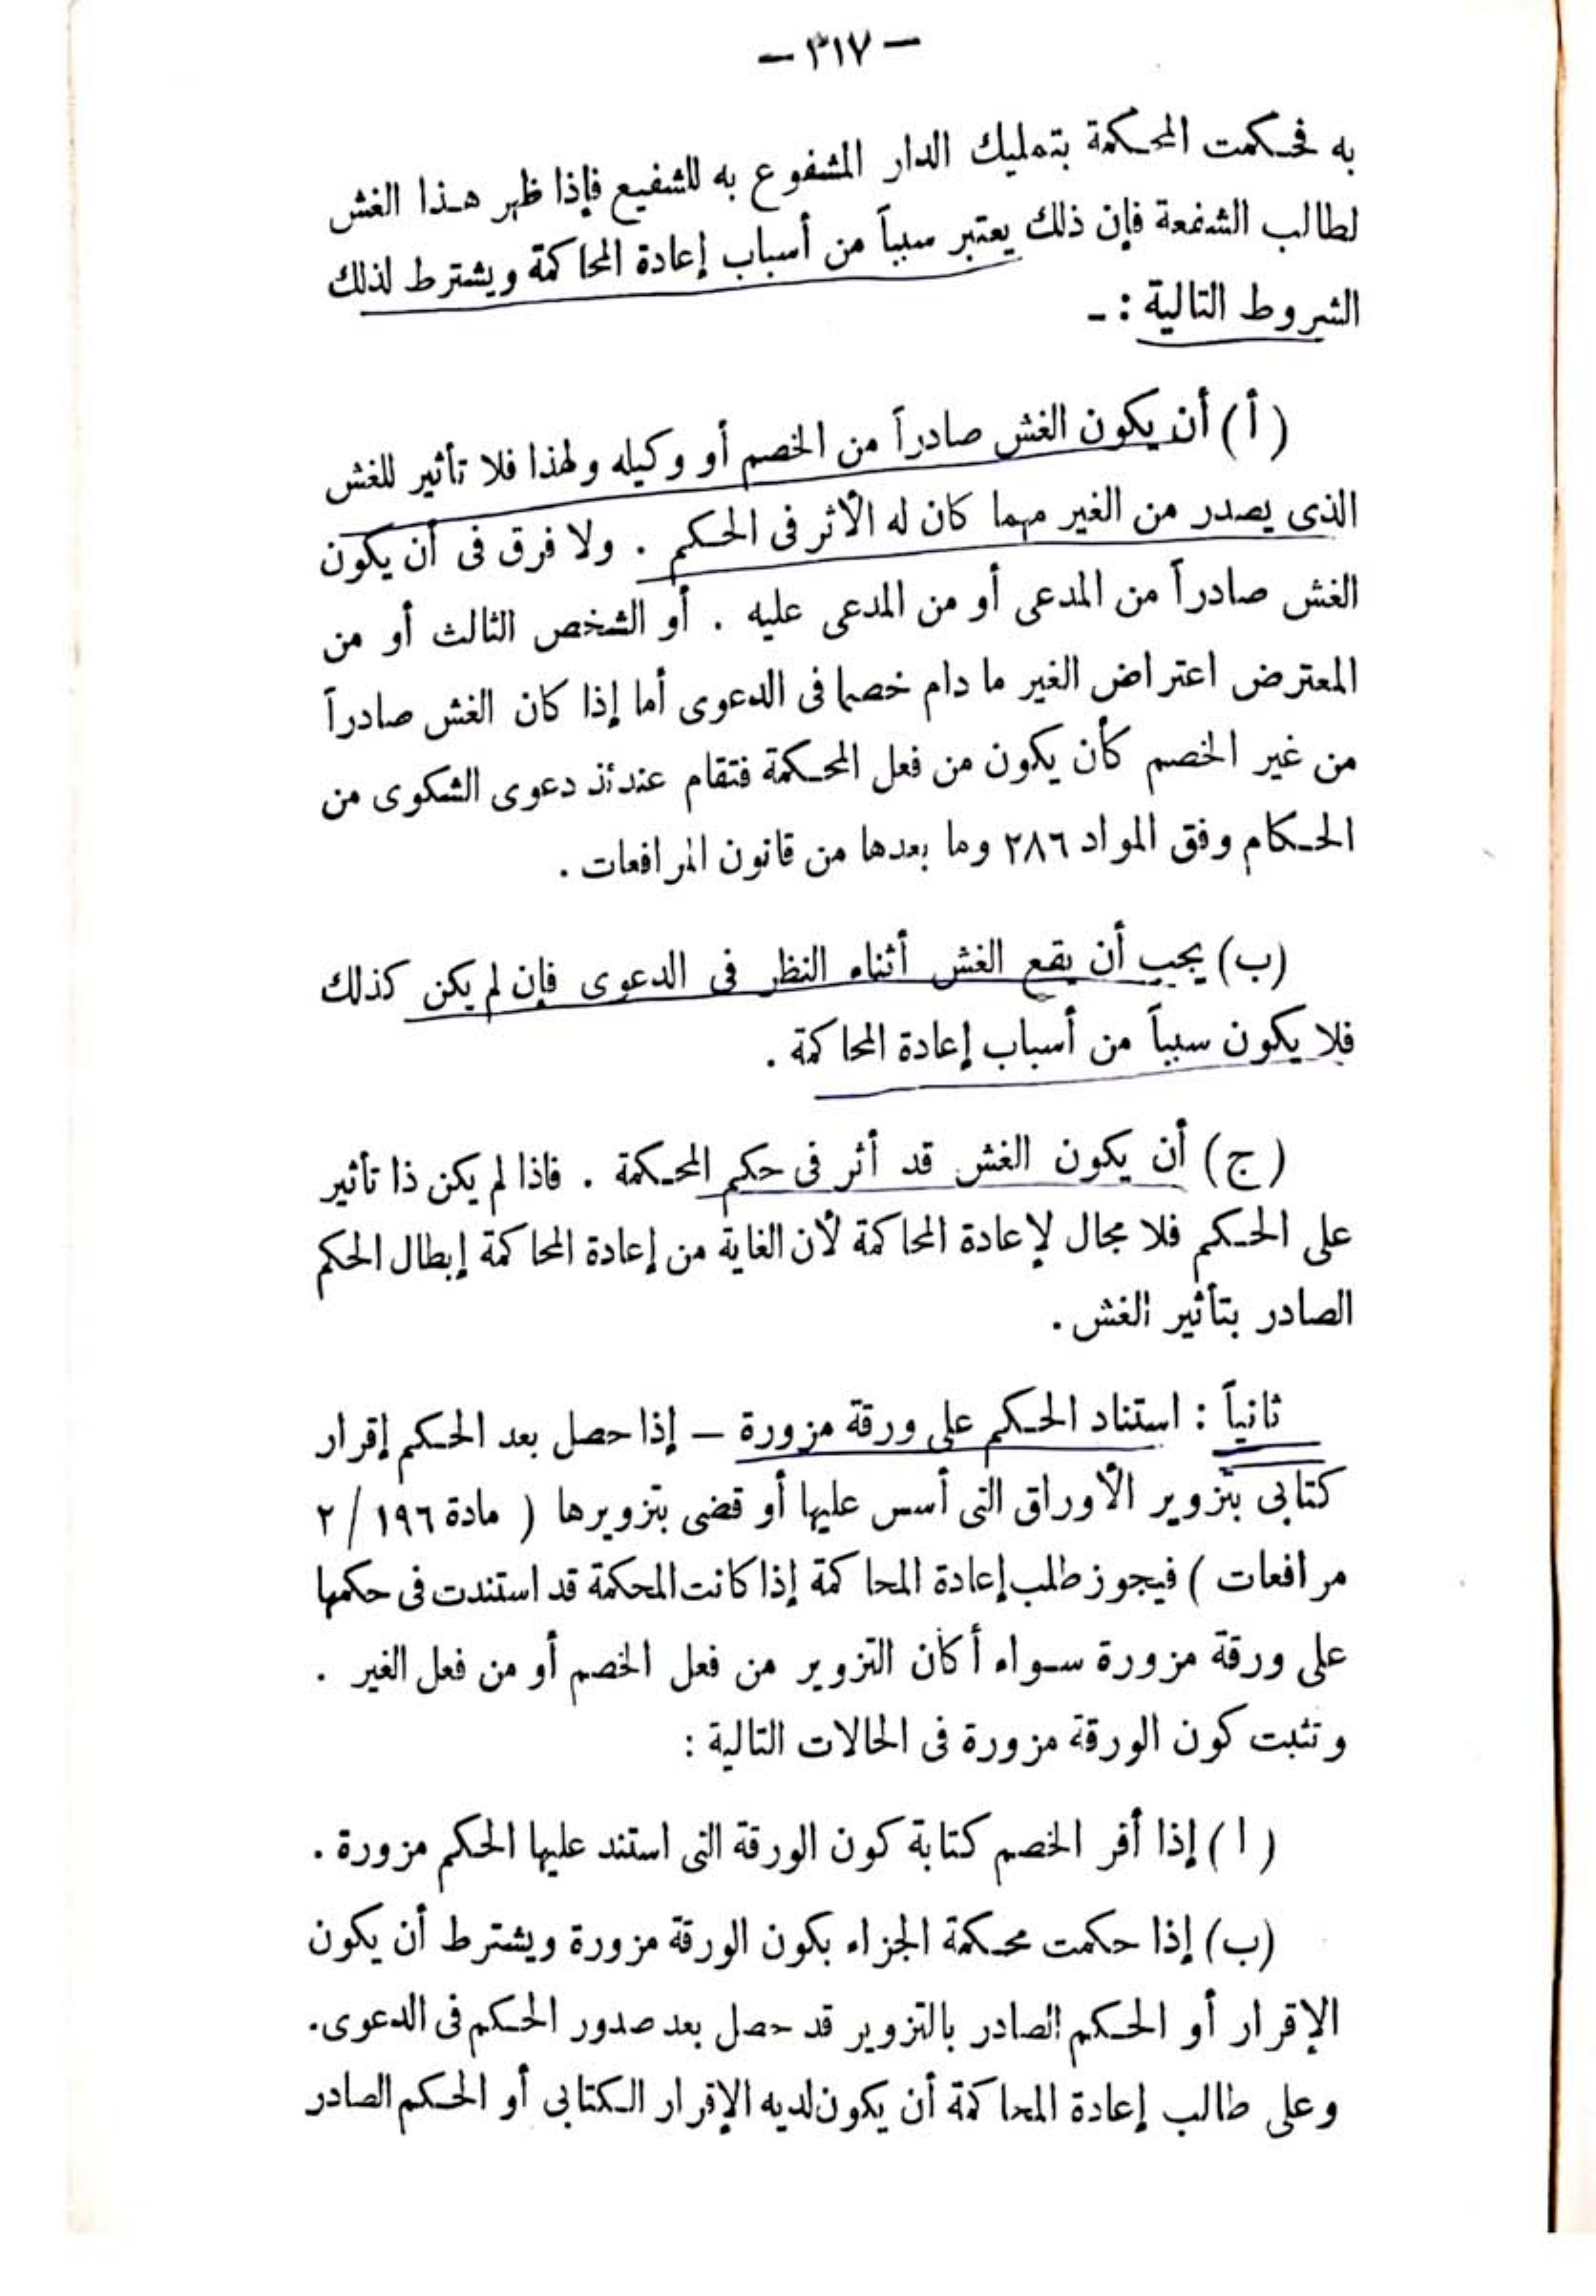 — ٣١٧ —
به فحكمت المحكمة بتمليك الدار المشفوع به للشفيع فإذا ظهر هذا الغش
لطالب الشفعة فإن ذلك يعتبر سبباً من أسباب إعادة المحاكمة ويشترط لذلك
الشروط التالية : -
( أ ) أن يكون الغش صادراً من الخصم أو وكيله ولهذا فلا تأثير للغش
الذى يصدر من الغير مهما كان له الأثر فى الحكم . ولا فرق فى أن يكون
الغش صادراً من المدعى أو من المدعى عليه . أو الشخص الثالث أو من
المعترض اعتراض الغير ما دام خصما فى الدعوى أما إذا كان الغش صادراً
من غير الخصم كأن يكون من فعل المحكمة فتقام عندئذ دعوى الشكوى من
الحكام وفق المواد ٢٨٦ وما بعدها من قانون المرافعات .
(ب) يجب أن يقع الغش أثناء النظر فى الدعوى فإن لم يكن كذلك
فلا يكون سبباً من أسباب إعادة المحاكمة .
( ج ) أن يكون الغش قد أثر فى حكم المحكمة . فاذا لم يكن ذا تأثير
على الحكم فلا مجال لإعادة المحاكمة لأن الغاية من إعادة المحاكمة إبطال الحكم
الصادر بتأثير الغش .
ثانياً : استناد الحكم على ورقة مزورة – إذا حصل بعد الحكم إقرار
كتابى بتزوير الأوراق التى أسس عليها أو قضى بتزويرها ( مادة ١٩٦ / ٢
مرافعات ) فيجوز طلب إعادة المحاكمة إذا كانت المحكمة قد استندت فى حكمها
على ورقة مزورة سواء أكان التزوير من فعل الخصم أو من فعل الغير .
وتثبت كون الورقة مزورة فى الحالات التالية :
( ا ) إذا أقر الخصم كتابة كون الورقة التى استند عليها الحكم مزورة .
(ب) إذا حكمت محكمة الجزاء بكون الورقة مزورة ويشترط أن يكون
الإقرار أو الحكم الصادر بالتزوير قد حصل بعد صدور الحكم فى الدعوى .
وعلى طالب إعادة المحاكمة أن يكون لديه الإقرار الكتابى أو الحكم الصادر